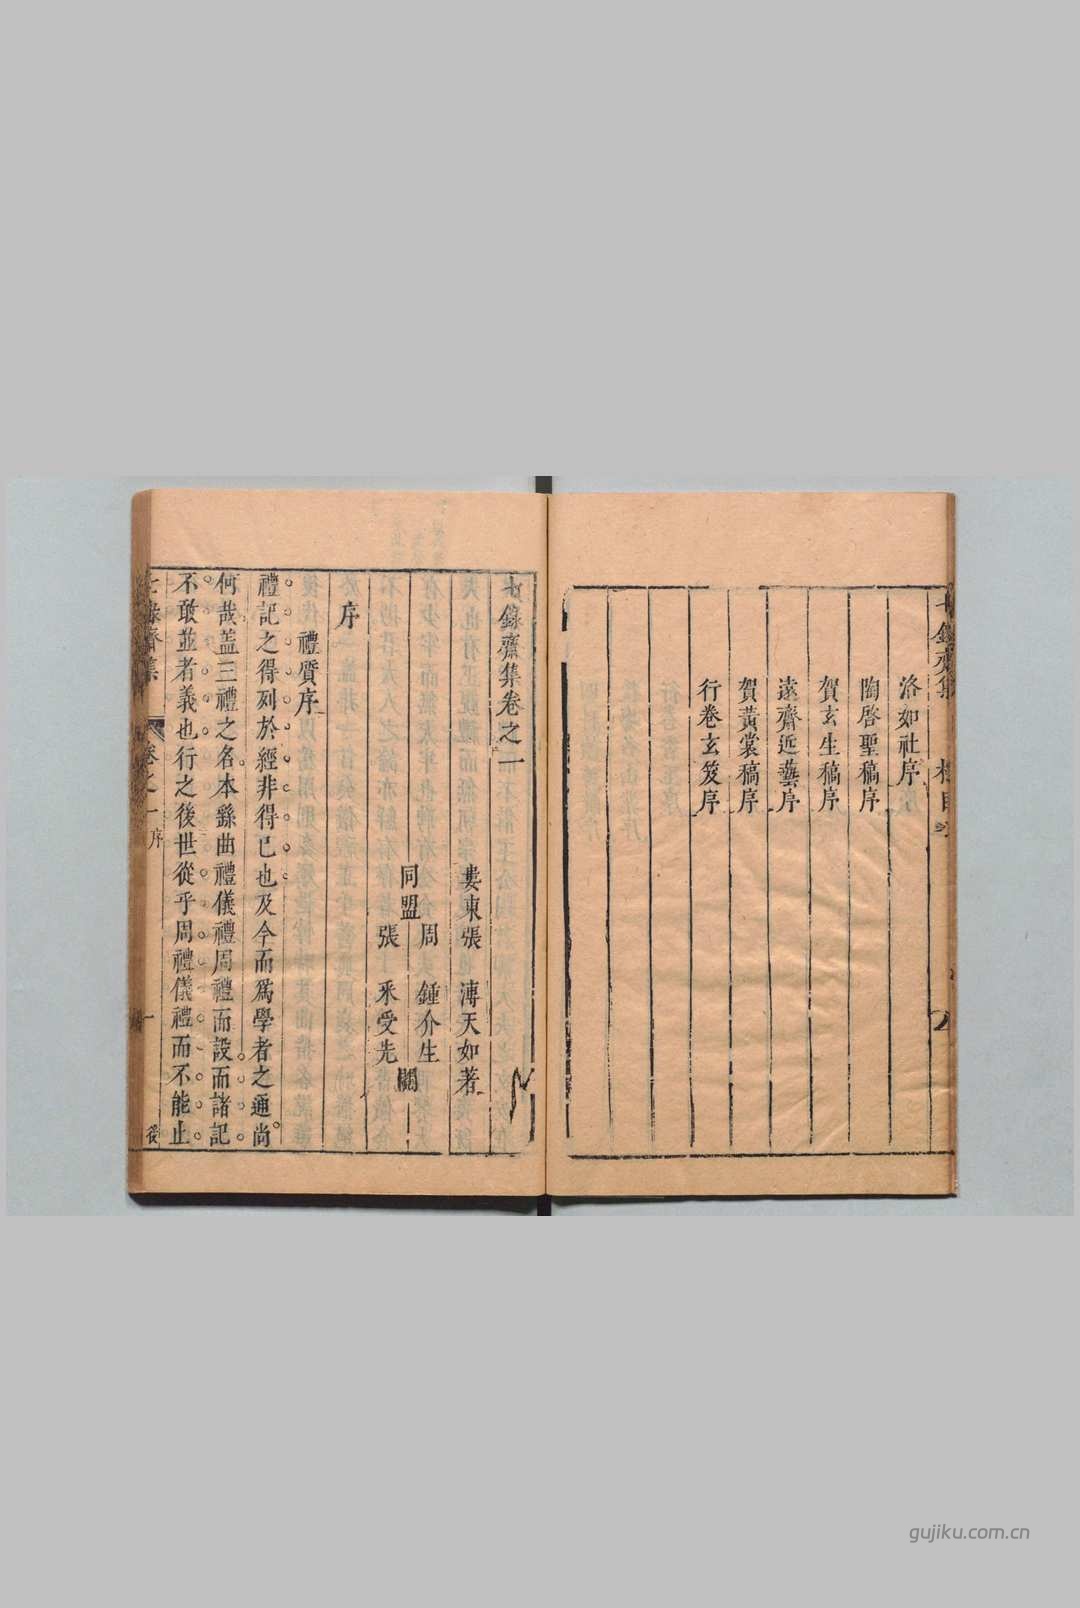 七錄齋集
洛如社序
陶啓聖稿序
賀玄生稿序
遠齋近藝序
賀黃裳稿序
行卷玄笈序
七錄齋集卷之一
婁東張 溥天如著
同盟
周 鍾介生
張 采受先
閱
序
禮質序
禮記之得列於經非得已也及今而爲學者之通尚
何哉盖三禮之名本繇曲禮儀禮周禮而設而諸記
不敢並者義也行之後世從乎周禮儀禮而不能止
七錄齋集
卷之一
序
一
後
gujiku.com.cn